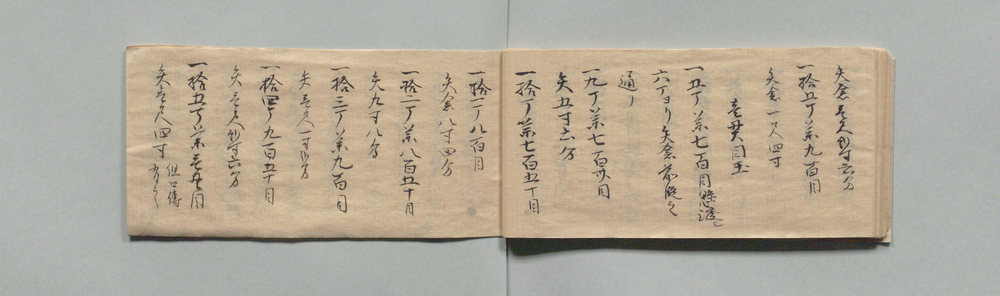 矢倉壱尺弐寸六分
一拾五丁薬九百目
矢倉一尺四寸
壱貫目玉
一五丁薬七百目
六丁ヨリ矢倉
通り
一九丁薬七百
矢五寸六分
一拾丁薬七百五十目
一拾一丁八百目
矢倉八寸四分
一拾二丁薬八百五十目
矢九寸八分
一拾三丁薬九百目
矢壱尺一寸
一拾四丁九百五十目
矢壱尺弐寸六分
一拾五丁薬壱貫目
矢壱尺四寸 但口伝